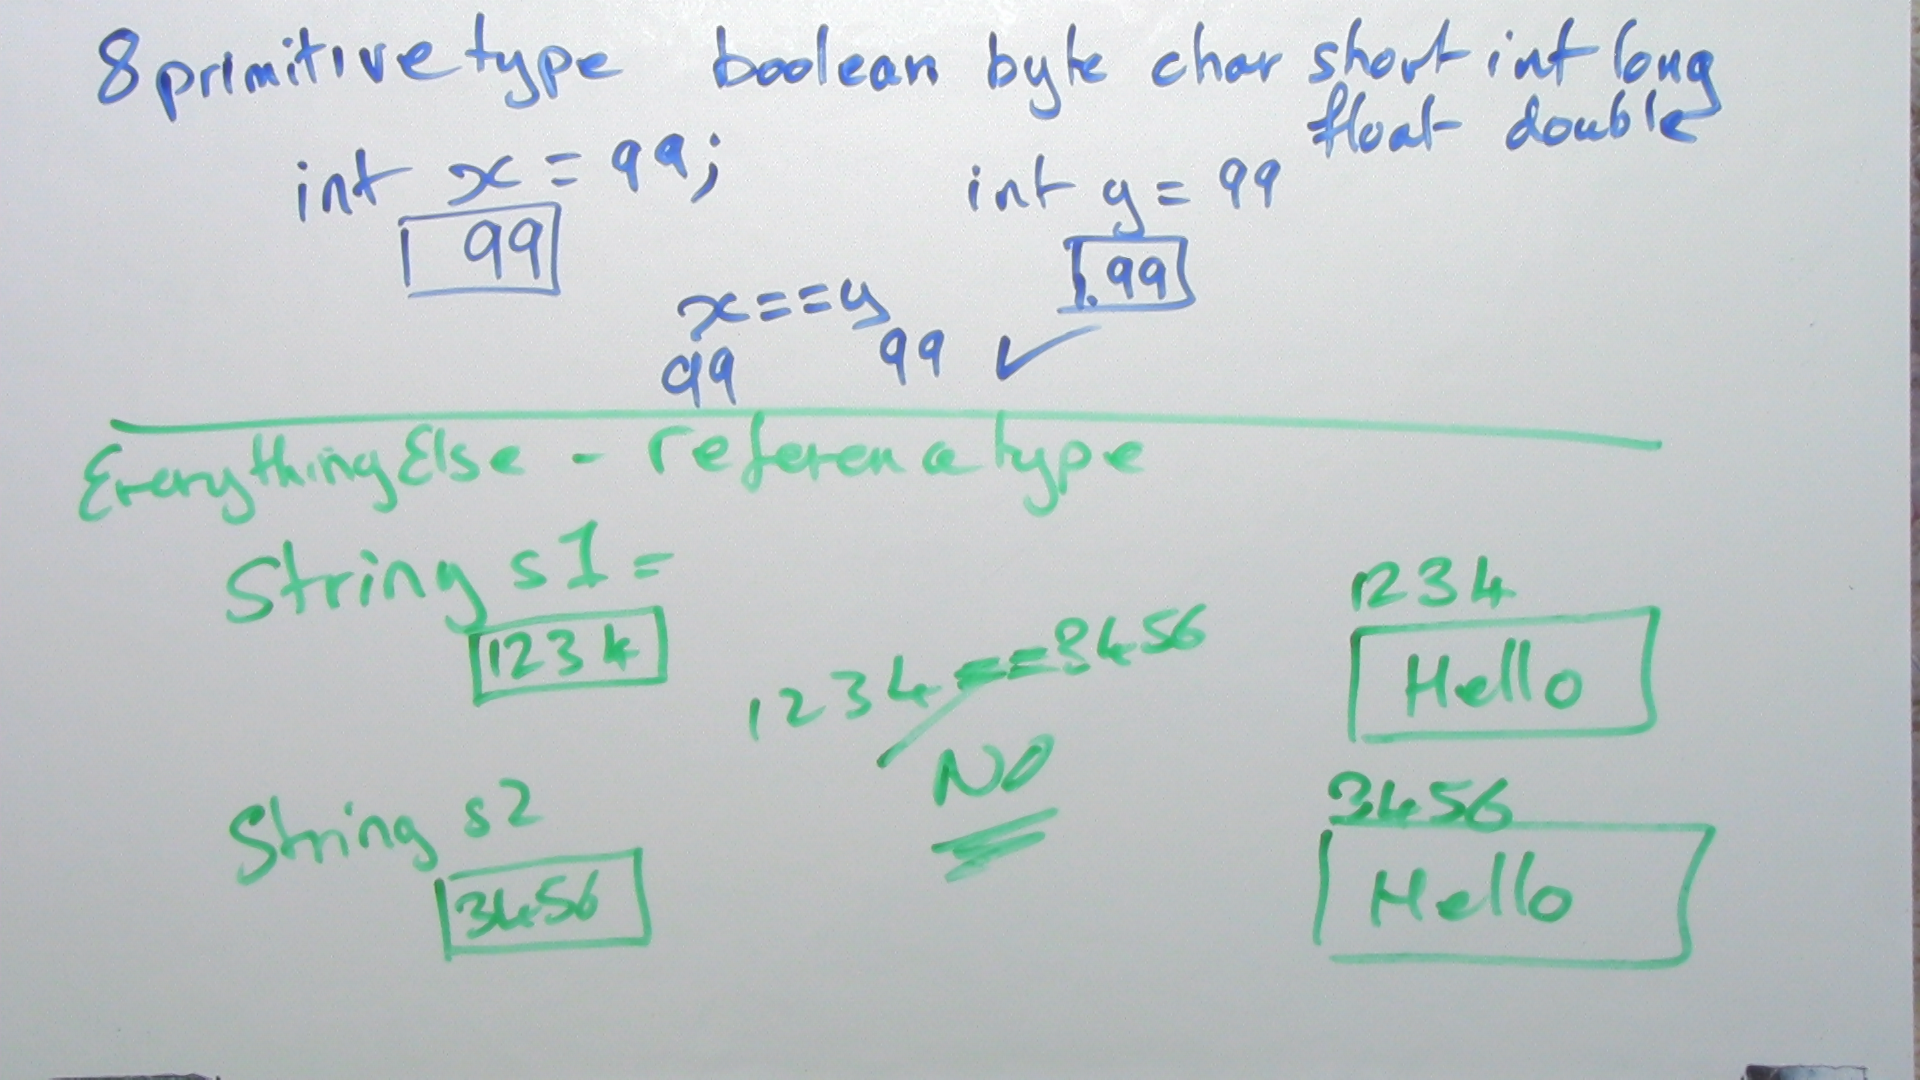 8 primitive type boolean byte char short int long
float double
int x = 99; int y = 99
99 99
x==y
99 99 ✓
Everything Else - reference type
String s1 =
1234
1234 == 3456
NO
1234
Hello
String s2
3456
3456
Hello